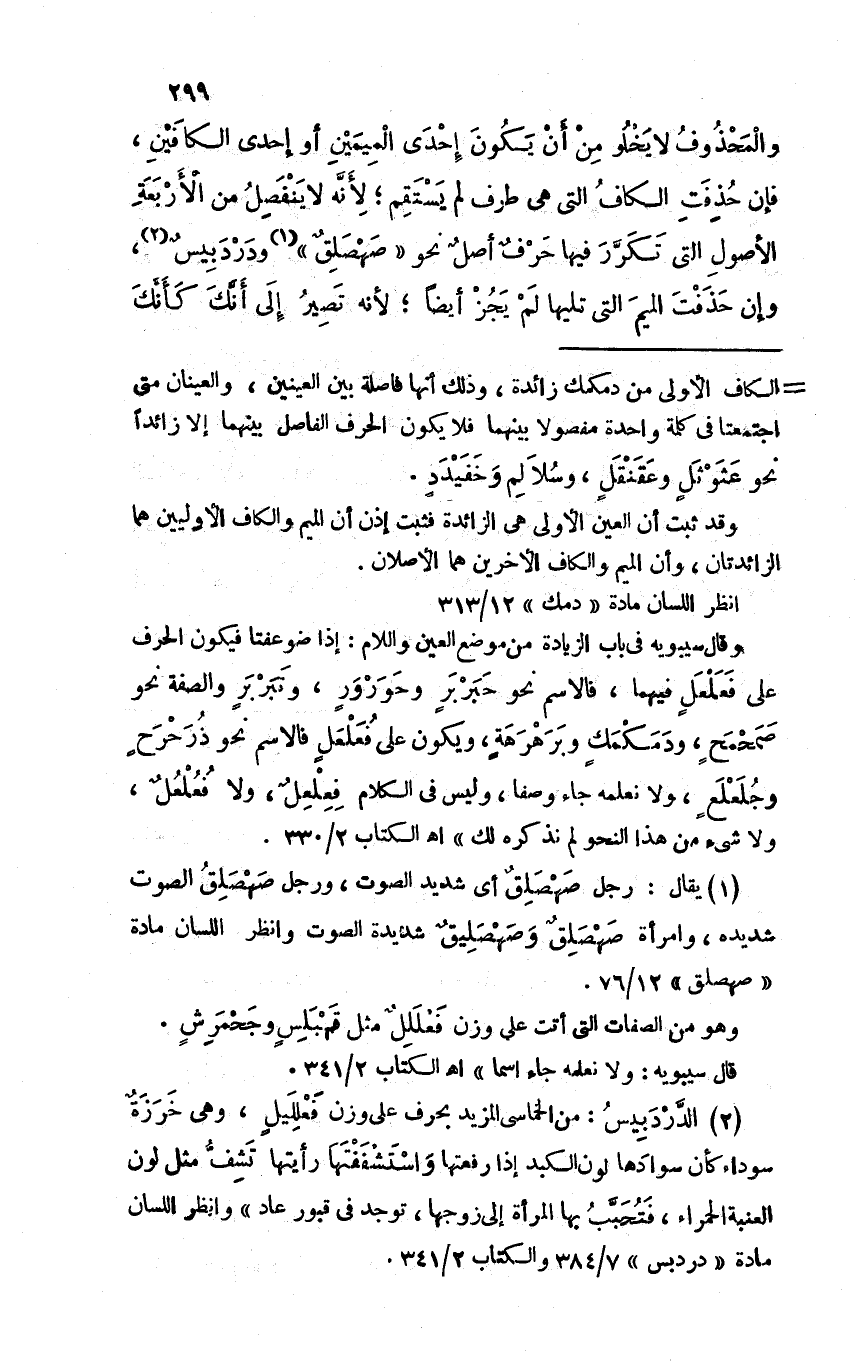 ٢٩٩
والْمَحْذُوفُ لا يَخْلُو مِنْ أَنْ يَكُونَ إِحْدَى الْمِيمَيْنِ أو إحدى الكافَيْنِ ،
فإن حُذِفَتِ الكافُ التى هى طرف لم يَسْتَقِم ؛ لِأَنَّه لا يَنْفَصِلُ من الْأَرْبَعَةِ
الأصولِ التى تَكَرَّرَ فيها حَرْفٌ أصلٌ نحو « صَهْصَلِقٌ »(١) ودَرْدَبِيسٌ(٢) ،
وإن حَذَفْتَ الميمَ التى تليها لَمْ يَجُزْ أيضاً ؛ لأنه تَصِيرُ إِلَى أَنَّكَ كَأَنَّكَ
= الكاف الأولى من دمكمك زائدة ، وذلك أنها فاصلة بين العينين ، والعينان متى
اجتمعتا فى كلمة واحدة مفصولا بينهما فلا يكون الحرف الفاصل بينهما إلا زائداً
نحو عَثَوْثَلٍ وعَقَنْقَلٍ ، وسُلَالِم وَخَفَيْدَدٍ .
وقد ثبت أن العين الأولى هى الزائدة فثبت إذن أن الميم والكاف الأوليين هما
الزائدتان ، وأن الميم والكاف الأخرين هما الأصلان .
انظر اللسان مادة « دمك » ٣١٣/١٢
وقال سيبويه فى باب الزيادة من موضع العين واللام : إذا ضوعفتا فيكون الحرف
على فَعَلْعَلٍ فيهما ، فالاسم نحو حَبَرْبَرٍ وحَوَرْوَرٍ ، وتَبَرْبَرٍ والصفة نحو
صَمَحْمَحٍ ، ودَمَكْمَكٍ وبَرَهْرَهَةٍ ، ويكون على فُعَلْعَلٍ فالاسم نحو ذُرَحْرَحٍ
وجُلَعْلَعٍ ، ولا نعلمه جاء وصفا ، وليس فى الكلام فِعِلْعِلٌ ، ولا فُعُلْعُلٌ ،
ولا شىء من هذا النحو لم نذكره لك » اه الكتاب ٣٣٠/٢ .
(١) يقال : رجل صَهْصَلِقٌ أى شديد الصوت ، ورجل صَهْصَلِقُ الصوت
شديده ، وامرأة صَهْصَلِقٌ وَصَهْصَلِيقٌ شديدة الصوت وانظر اللسان مادة
« صهصلق » ٧٦/١٢ .
وهو من الصفات التى أتت على وزن فَعْلَلِلٌ مثل قَهْبَلِسٍ وجَحْمَرِشٍ .
قال سيبويه : ولا نعلمه جاء اسما » اه الكتاب ٣٤١/٢ .
(٢) الدَّرْدَبِيسُ : من الخماسى المزيد بحرف على وزن فَعْلَلِيلٍ ، وهى خَرَزَةٌ
سوداء كأن سوادها لون الكبد إذا رفعتها وَاسْتَشْفَفْتَهَا رأيتها تَشِفُّ مثل لون
العنبة الحمراء ، فَتُحَبَّبُ بها المرأة إلى زوجها ، توجد فى قبور عاد » وانظر اللسان
مادة « دردبس » ٣٨٤/٧ والكتاب ٣٤١/٢ .